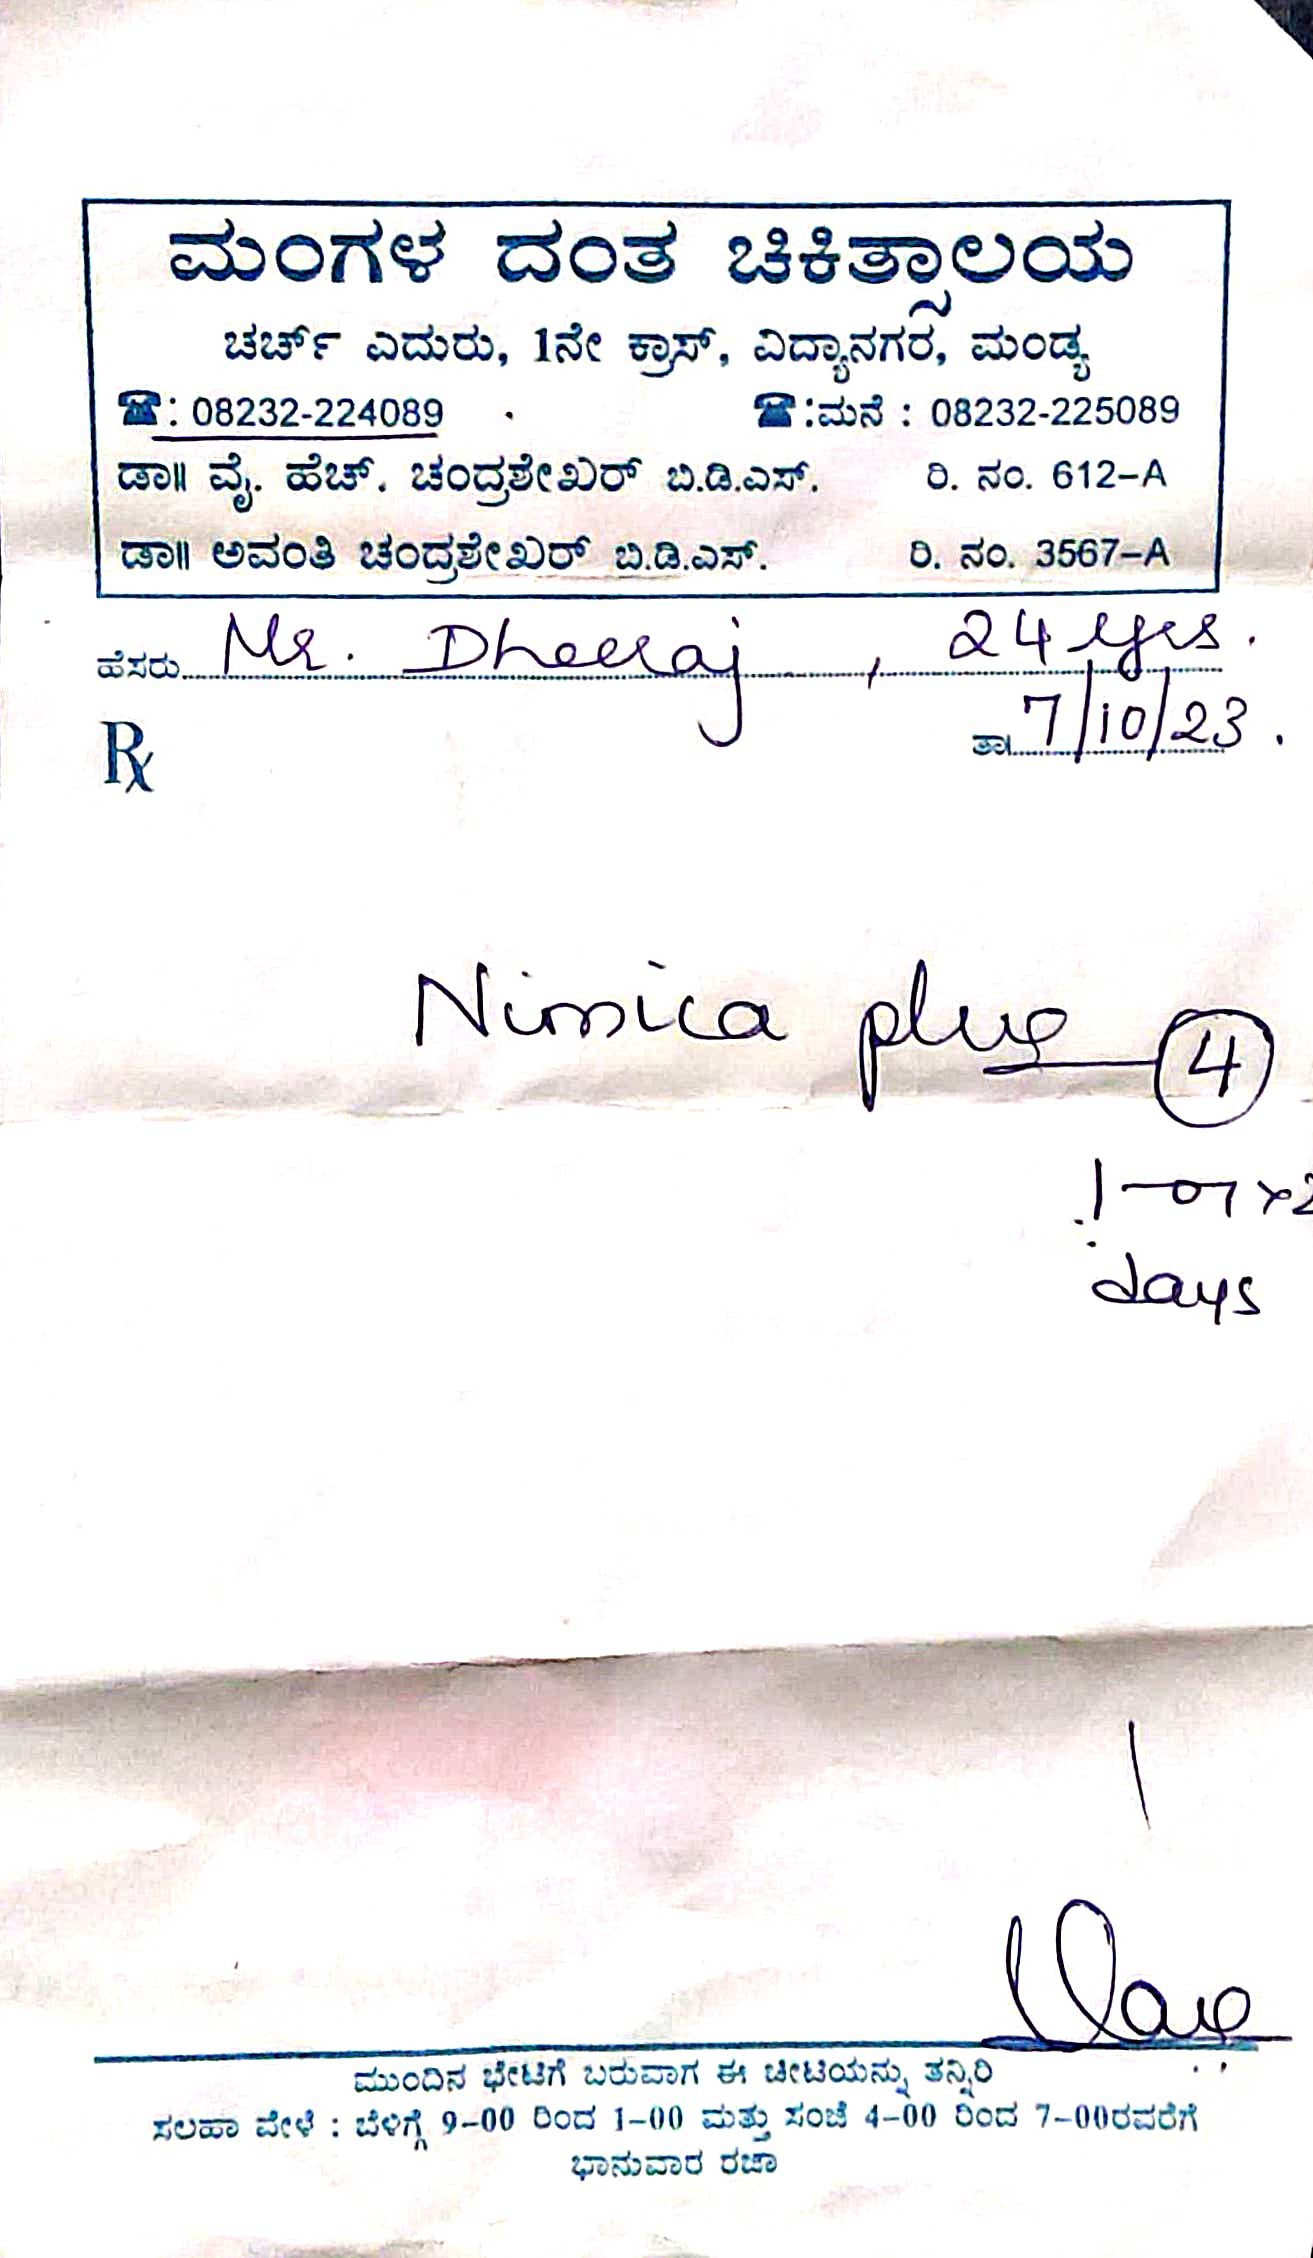 ಮಂಗಳ ದಂತ ಚಿಕಿತ್ಸಾಲಯ
ಚರ್ಚ್ ಎದುರು, 1ನೇ ಕ್ರಾಸ್, ವಿದ್ಯಾನಗರ, ಮಂಡ್ಯ
☎: 08232-224089 ☎:ಮನೆ : 08232-225089
ಡಾ॥ ವೈ. ಹೆಚ್. ಚಂದ್ರಶೇಖರ್ ಬಿ.ಡಿ.ಎಸ್. ರಿ. ನಂ. 612-A
ಡಾ॥ ಅವಂತಿ ಚಂದ್ರಶೇಖರ್ ಬಿ.ಡಿ.ಎಸ್. ರಿ. ನಂ. 3567-A
ಹೆಸರು Mr. Dheeraj, 24 yrs.
Rx ತಾ। 7/10/23.
Nimica plus 4
1-0-1 x 2
days
ಮುಂದಿನ ಭೇಟಿಗೆ ಬರುವಾಗ ಈ ಚೀಟಿಯನ್ನು ತನ್ನಿರಿ
ಸಲಹಾ ವೇಳೆ : ಬೆಳಿಗ್ಗೆ 9-00 ರಿಂದ 1-00 ಮತ್ತು ಸಂಜೆ 4-00 ರಿಂದ 7-00ರವರೆಗೆ
ಭಾನುವಾರ ರಜಾ